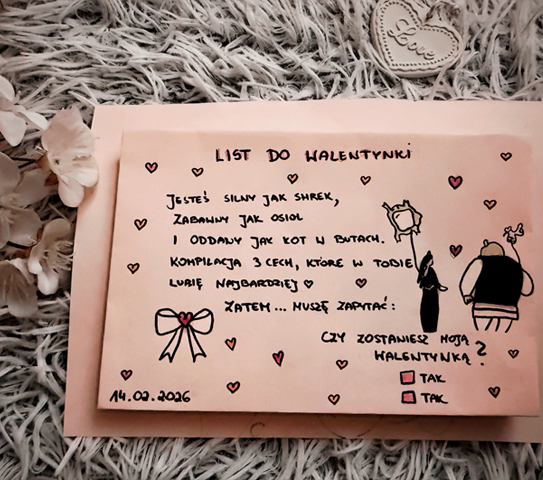 Love
LIST DO WALENTYNKI
JESTEŚ SILNY JAK SHREK,
ZABAWNY JAK OSIOŁ
I ODDANY JAK KOT W BUTACH.
KOMPILACJA 3 CECH, KTÓRE W TOBIE
LUBIĘ NAJBARDZIEJ ♡
ZATEM... MUSZĘ ZAPYTAĆ:
CZY ZOSTANIESZ MOJĄ
WALENTYNKĄ?
TAK
TAK
14.02.2026